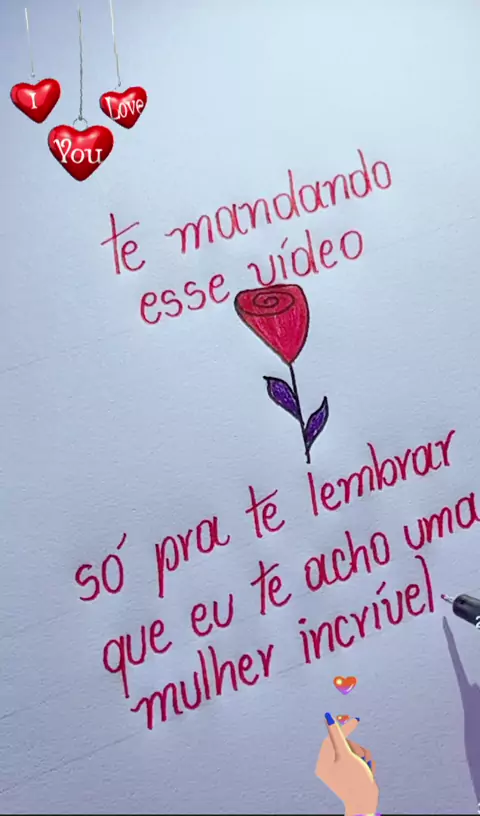 I
Love
You
te mandando
esse vídeo
só pra te lembrar
que eu te acho uma
mulher incrível